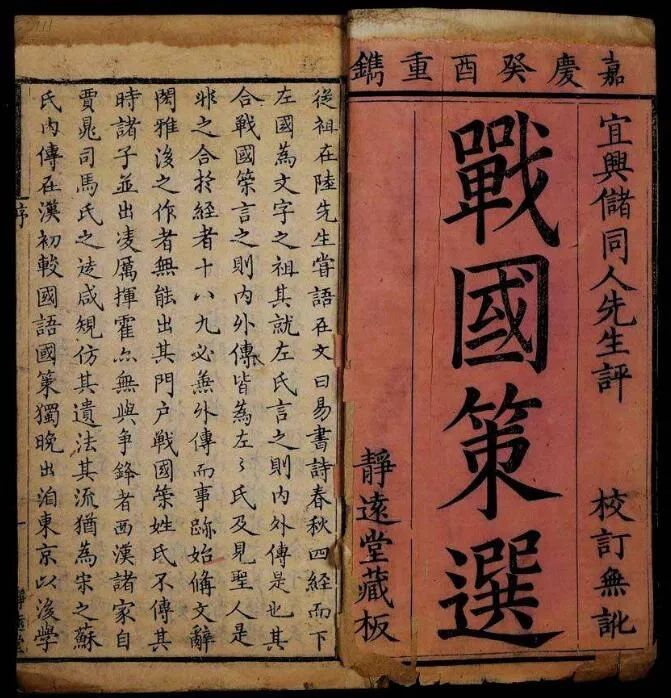 嘉慶癸酉重鐫
宜興儲同人先生評 校訂無訛
戰國策選
靜遠堂藏板
從祖在陸先生嘗語在文曰易書詩春秋四經而下
左國為文字之祖其就左氏言之則內外傳是也其
合戰國策言之則內外傳皆為左々氏及見聖人是
非之合於經者十八九必無外傳而事跡始備文辭
閎雅後之作者無能出其門戶戰國策姓氏不傳其
時諸子並出凌厲揮霍尒無與爭鋒者西漢諸家自
賈鼂司馬氏之遠咸規仿其遺法其流猶為宋之蘇
氏內傳在漢初較國語國策獨晚出洎東京以後學
序
一